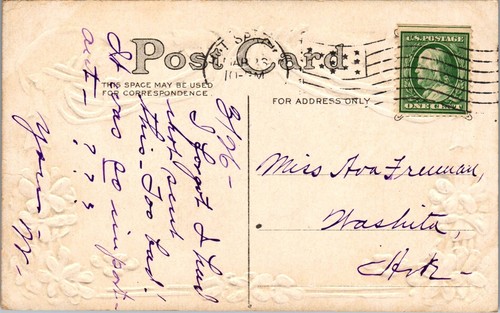 Post Card
THIS SPACE MAY BE USED
FOR CORRESPONDENCE.
FOR ADDRESS ONLY
U.S. POSTAGE
ONE CENT
3/26-
I forgot I had
not sent
this - Too bad!
It was so import-
ant - ? ? ?
Yours
Miss Ava Freeman,
Washita,
Ark-